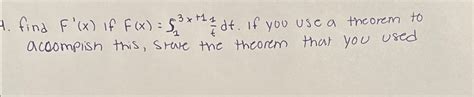 1. find F'(x) if F(x) = ∫₁^(3x+1) 1/t dt. If you use a theorem to
accomplish this, state the theorem that you used